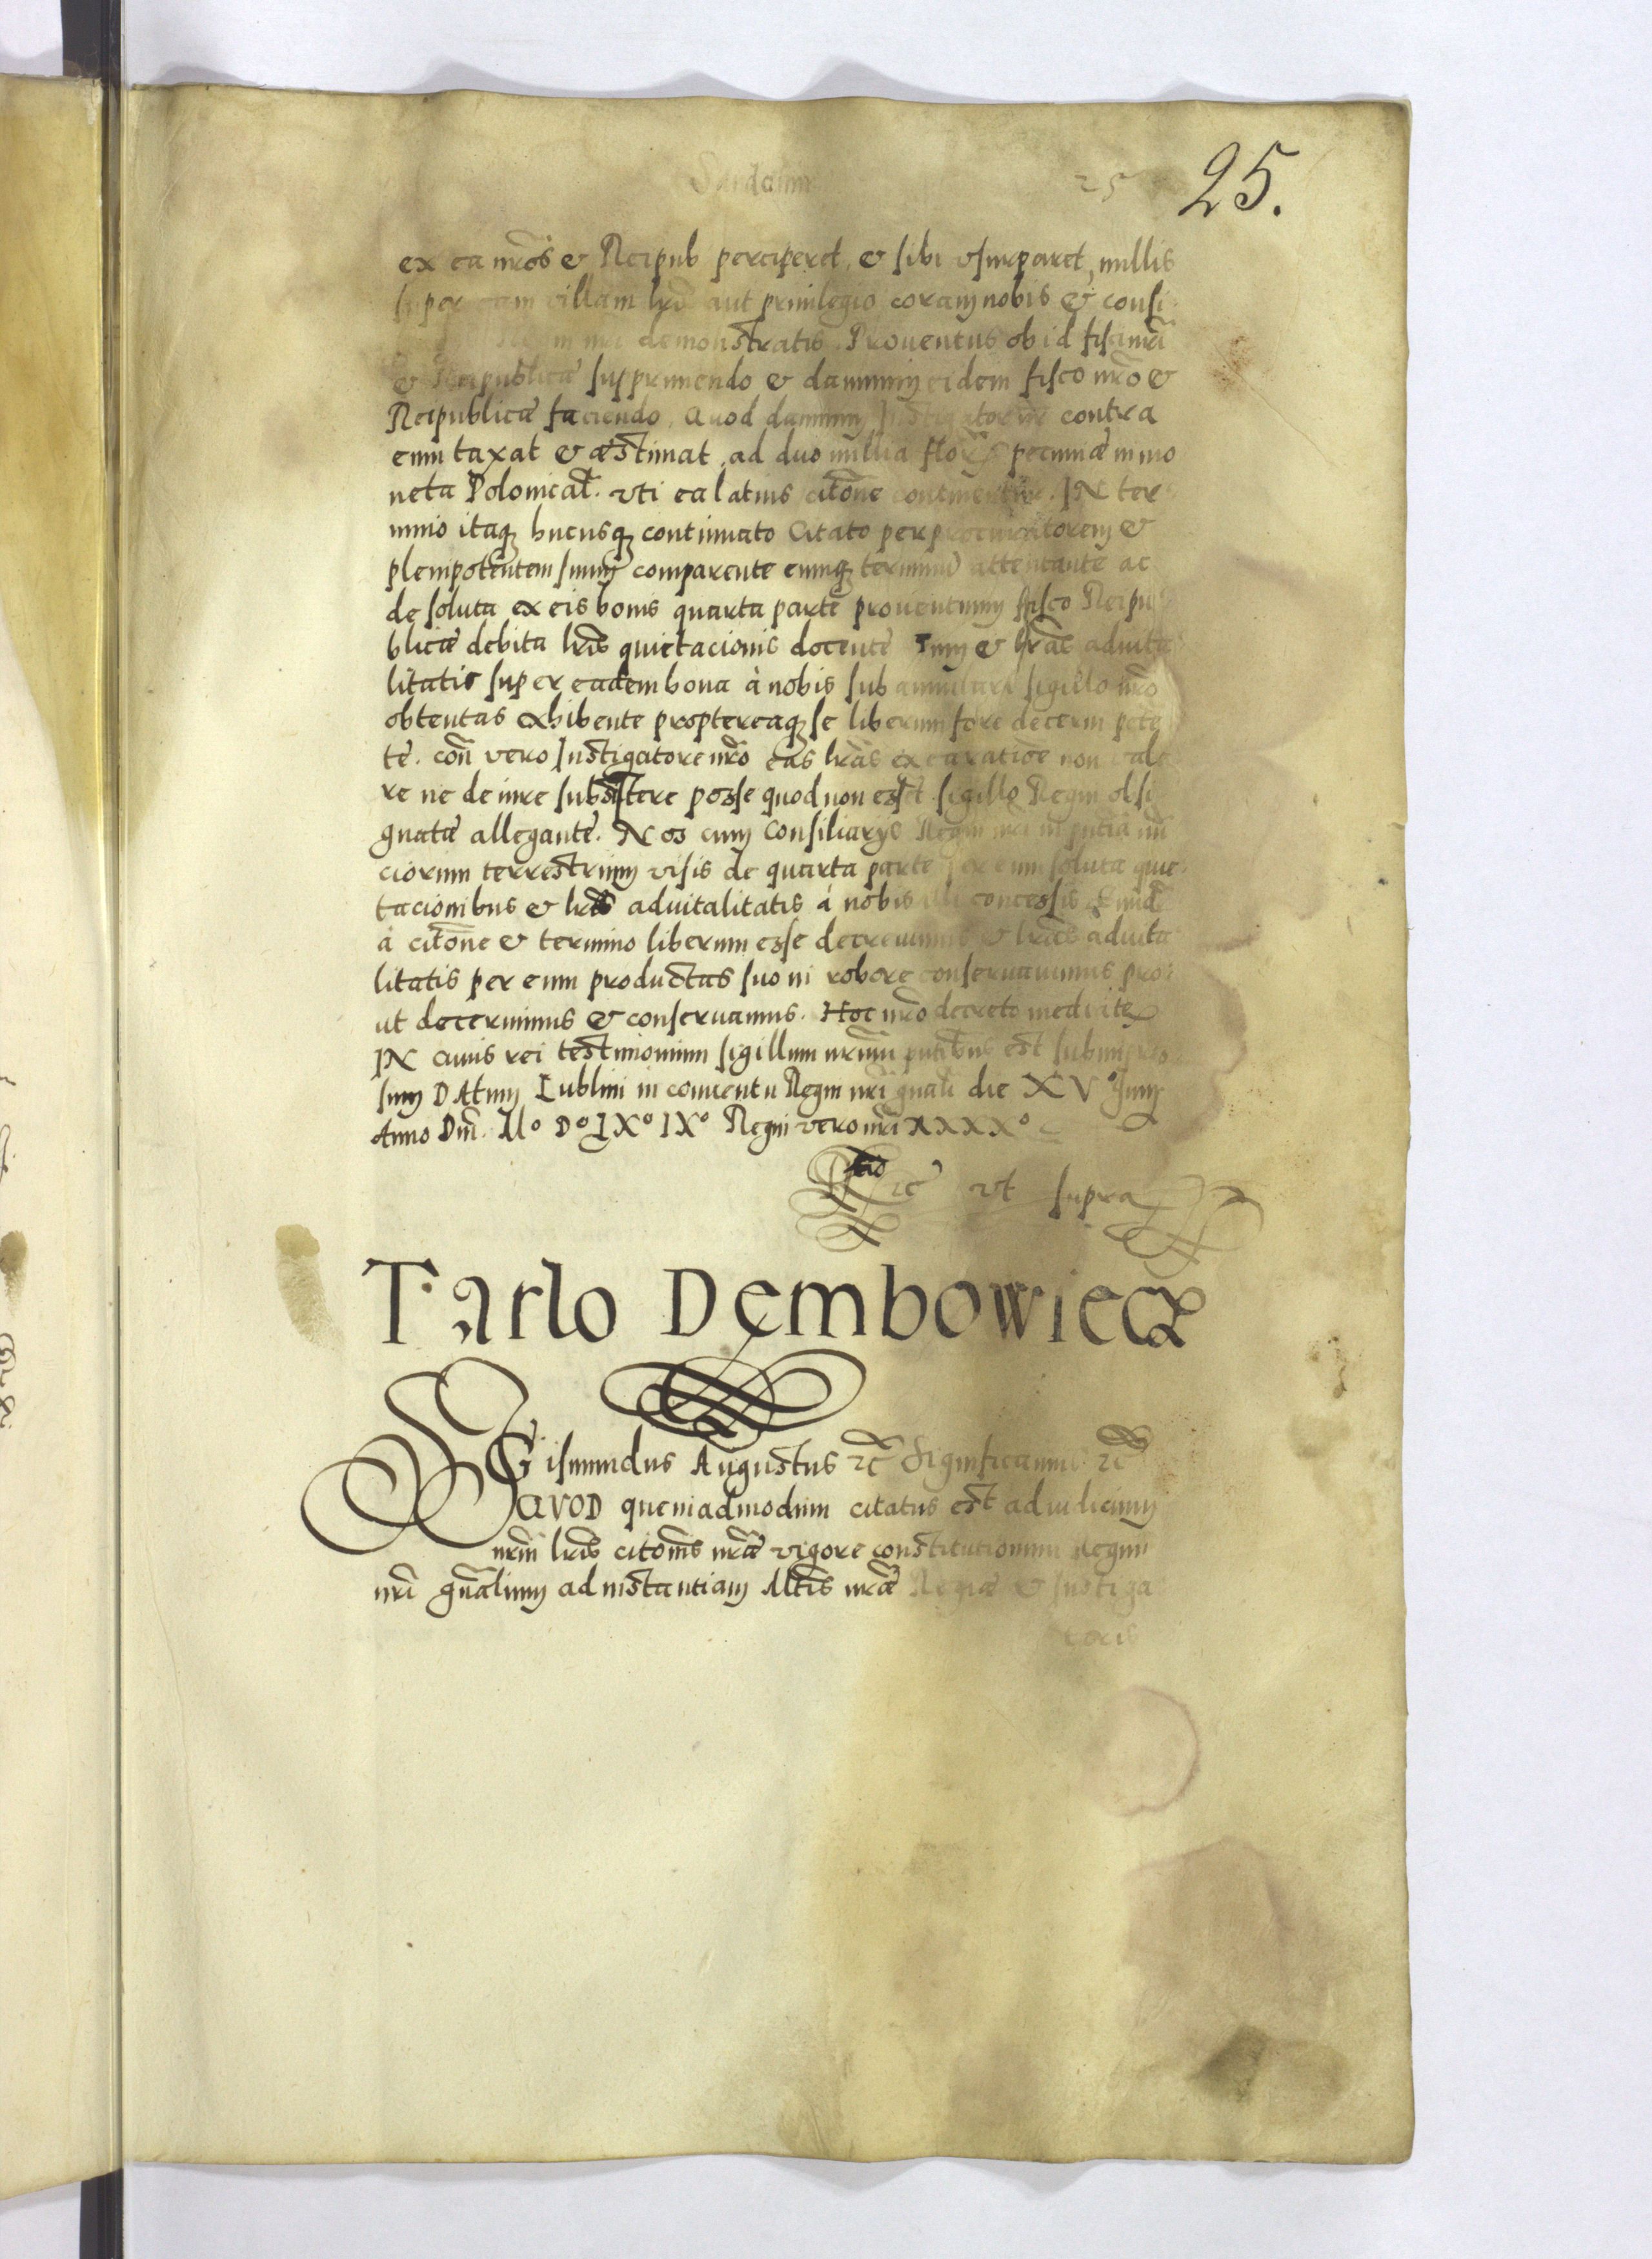 25
25.
ex ea nr̃os & Reipub perciperet, & sibi vsurparet, nullis
super eam villam lr̃is aut priuilegio coram nobis & consi
demonstratis. Prouentus ob id fisci nr̃i
& Reipublicæ supprimendo & damnum eidem fisco nr̃o &
Reipublicæ faciendo. Quod damnum Instigator nr̃ contra
eum taxat & æstimat, ad duo millia flor̃ pecuniæ in mo
neta Polonical̃. vti ea latius citãone continentur. IN ter
mino itaq3 hucusq3 continuato Citato per procuratorem &
plenipotẽntem suum comparente eumq3 terminũ attentante ac
de soluta ex eis bonis quarta parte prouentuum fisco Reipu
blicæ debita lr̃is quietacionis docente Tum & lr̃as aduita
litatis super eadem bona à nobis sub annulari sigillo nr̃o
obtentas exhibente proptereaq3 se liberum fore decerni pete
te. coñ vero Instigatore nr̃o eas lr̃as ex non vale
re ne de iure subsistere posse quod non esset sigillo Regni obsi
gnatæ allegante. Nos cum Consiliarijs Regni nr̃i in pñtia nũ
ciorum terrestrium visis de quarta parte per eum soluta quie
tacionibus & lr̃is aduitalitatis à nobis illi concessis Eundẽ
à citõne & termino liberum esse decreuimus & lr̃as aduita
litatis per eum productas suo in robore conseruauimus pro
ut decernimus & conseruamus. Hoc nr̃o decreto mediãte
IN cuius rei testimonium sigillum nr̃um pñtibus est subimpres
sum DAtum Lublini in conuentu Regni nr̃i gnali die XVº Junij
Anno Dm̃. Mº Dº LXº IXº Regni vero nr̃i XXXXº
ut supra
Tarlo Dembowiecz
SIGismundus Augustus rc̃ Significamus rc̃
QVOD quemadmodum citatus est ad iudicium
nr̃m lr̃is citõnis nr̃æ vigore constitutionum Regni
nr̃i gñalium ad instantiam Mtis nr̃æ Regiæ & Instiga
toris